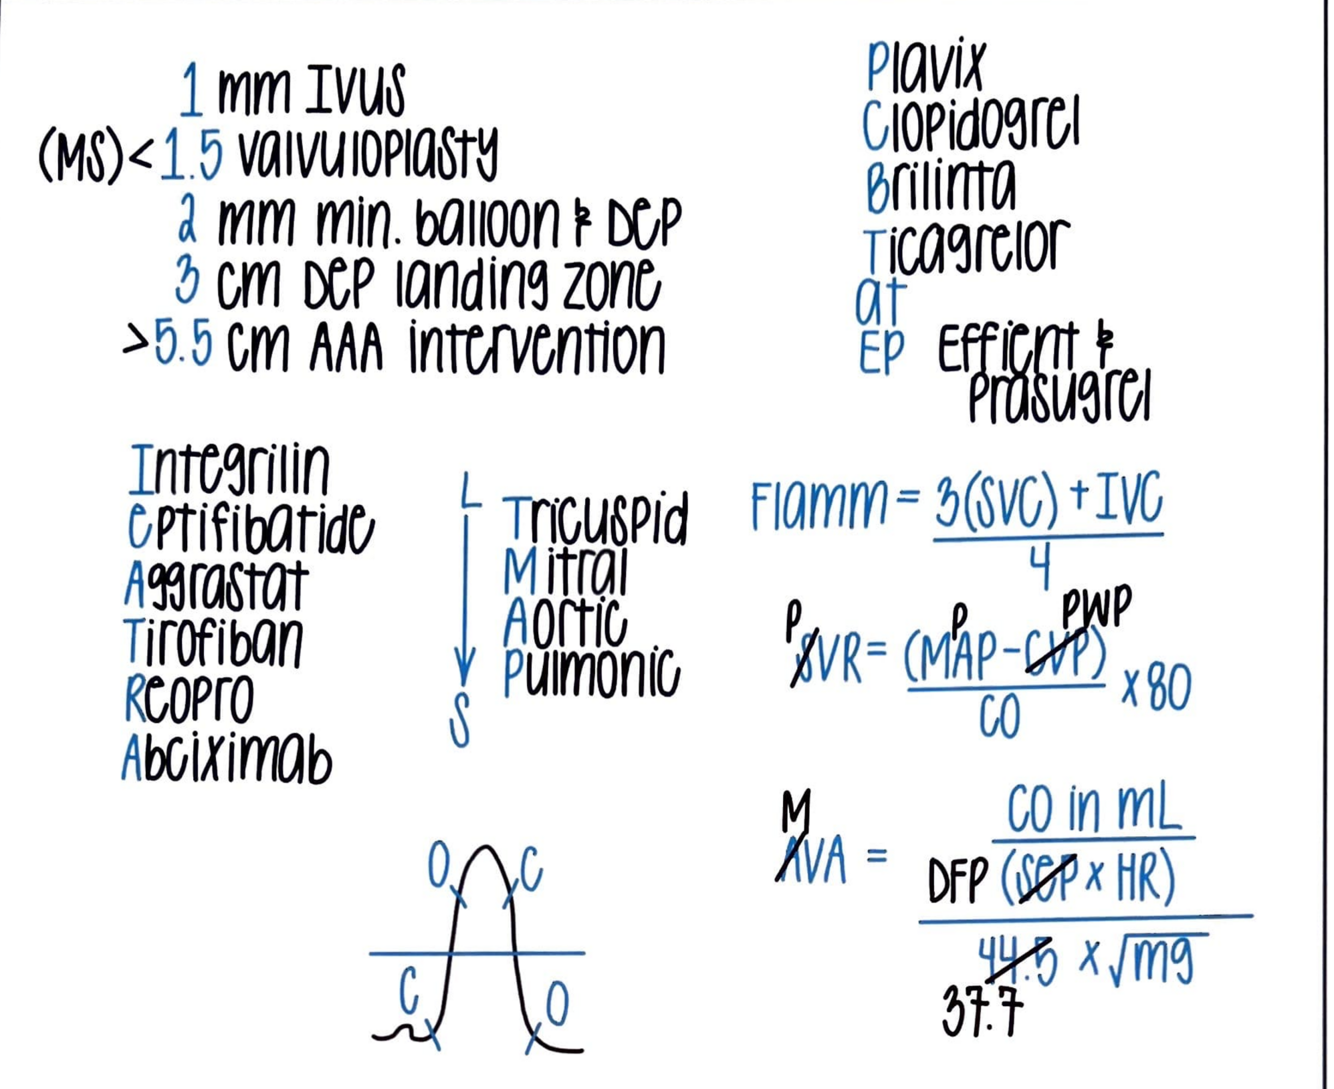 1 mm IVUS
(MS) < 1.5 valvuloplasty
2 mm min. balloon & DEP
3 cm DEP landing zone
>5.5 cm AAA intervention
Plavix
Clopidogrel
Brilinta
Ticagrelor
at
EP Effient &
Prasugrel
Integrilin
Eptifibatide
Aggrastat
Tirofiban
Reopro
Abciximab
L
Tricuspid
Mitral
Aortic
Pulmonic
S
Flamm = 3(SVC) + IVC
4
P P PWP
SVR = (MAP - CVP) x 80
CO
M
CO in mL
AVA = DFP (SEP x HR)
44.5 x √mg
37.7
O C
C O